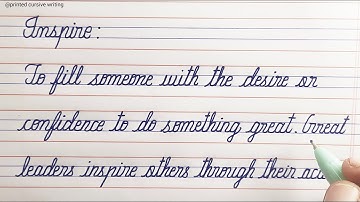 @printed cursive writing
Inspire:
To fill someone with the desire or
confidence to do something great. Great
leaders inspire others through their